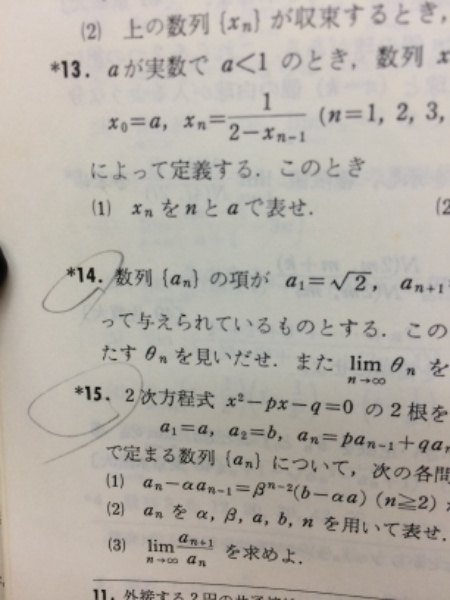 (2) 上の数列 {xn} が収束するとき,
*13. aが実数で a<1 のとき, 数列 x
x0=a, xn=1/(2-xn-1) (n=1, 2, 3,
によって定義する. このとき
(1) xnをnとaで表せ. (2
*14. 数列 {an} の項が a1=√2, an+1
って与えられているものとする. この
たす θn を見いだせ. また lim n→∞ θn を
*15. 2次方程式 x²-px-q=0 の2根を
a1=a, a2=b, an=pan-1+qan
で定まる数列 {an} について, 次の各問
(1) an-αan-1=βn-2(b-αa) (n≧2)
(2) an を α, β, a, b, n を用いて表せ.
(3) lim n→∞ an+1/an を求めよ.
11. 外接する2円の